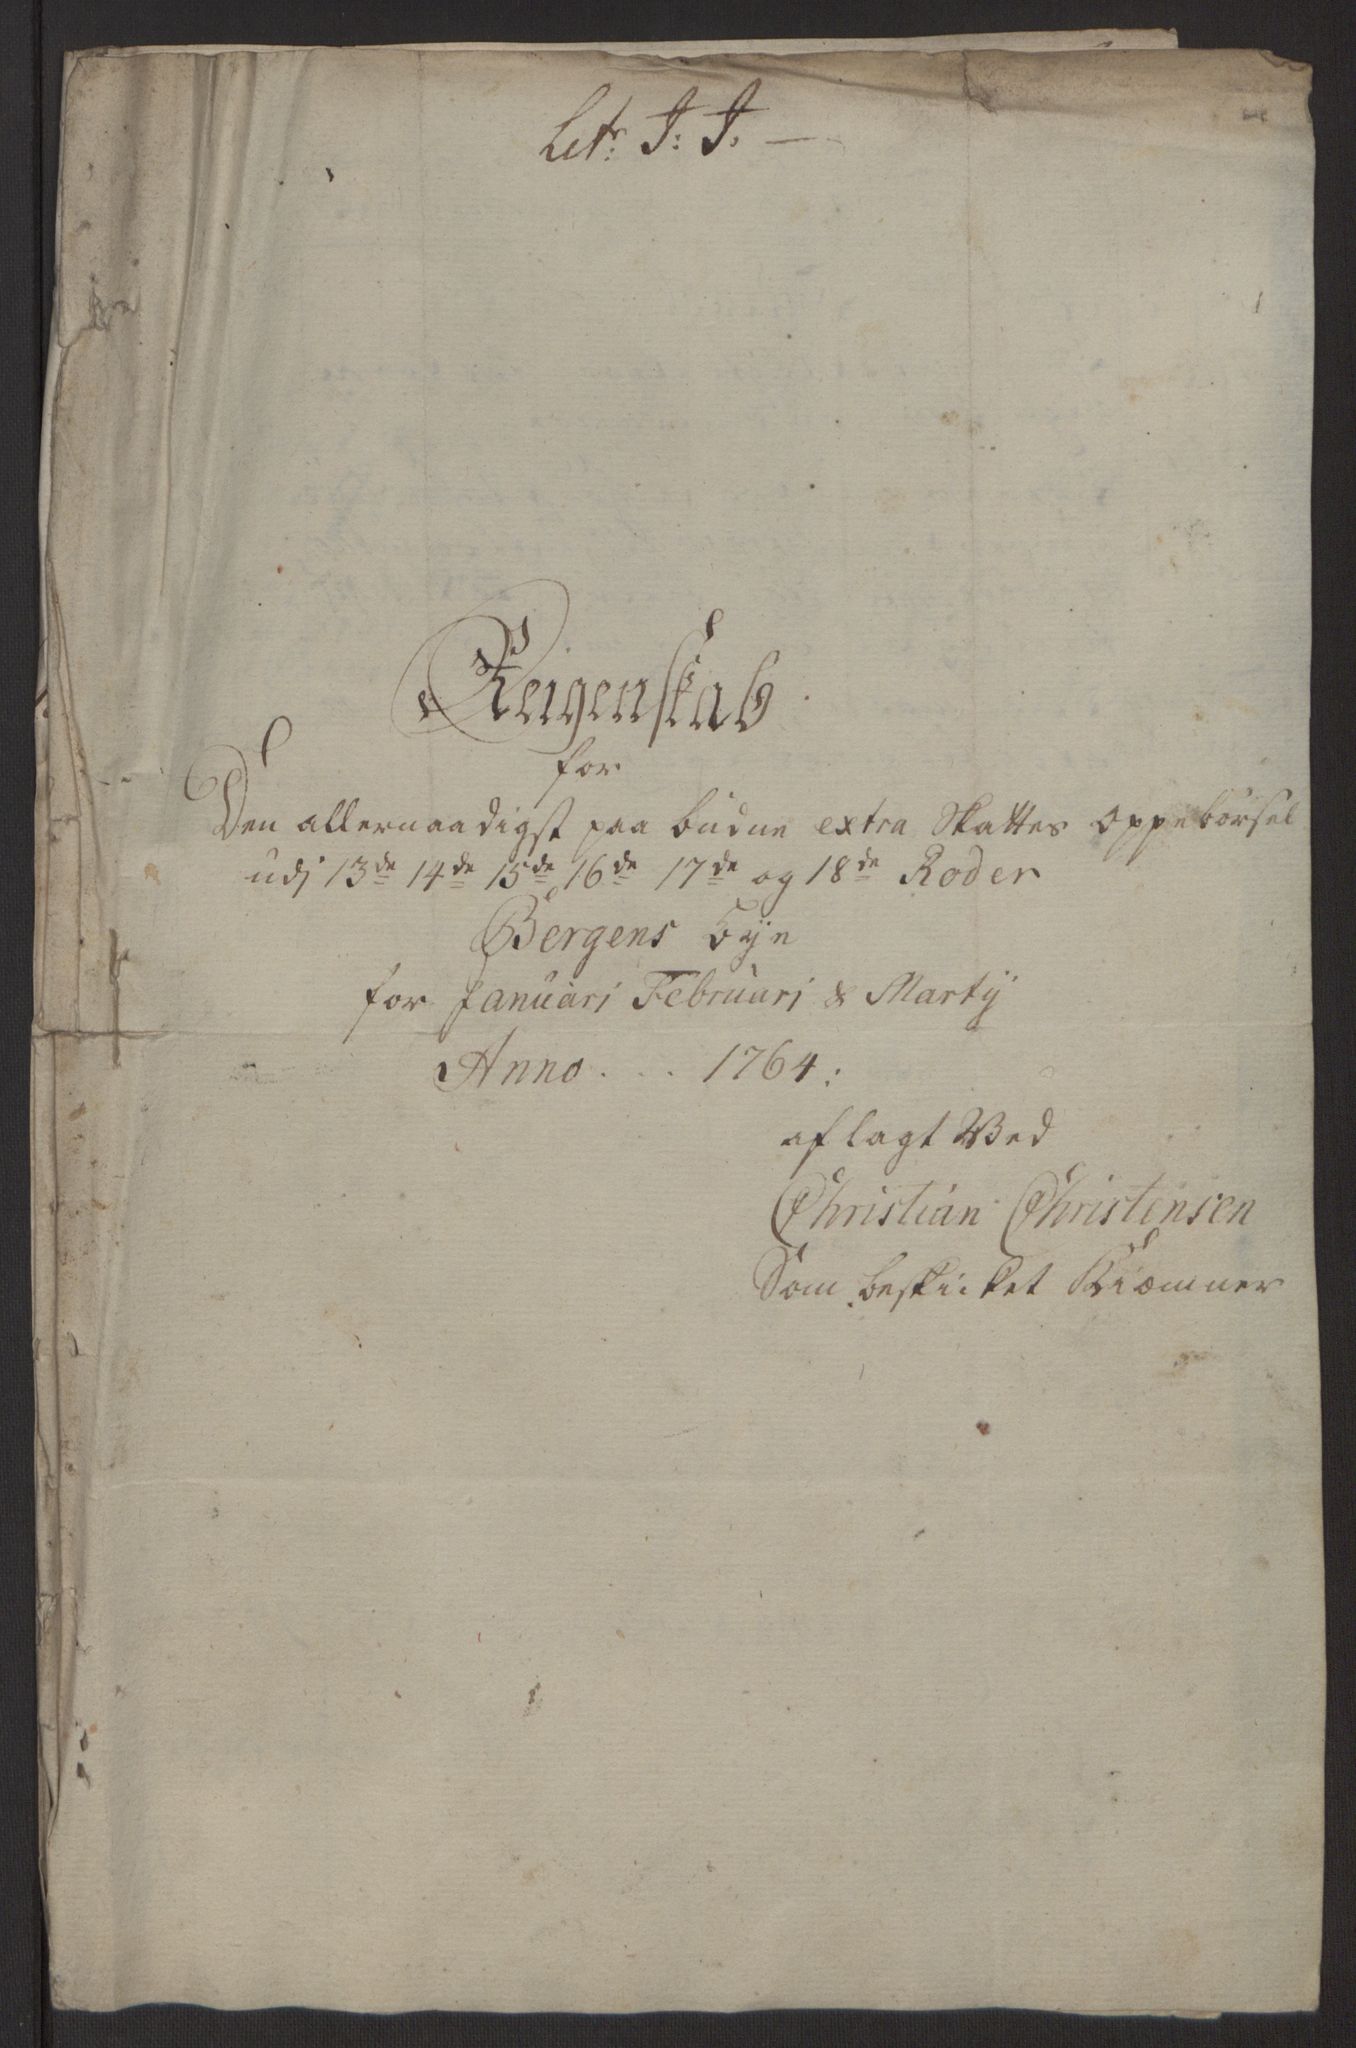 Litr: J: J. —
Reigenskab
for
Den allernaadigst paa budne extra Skattes Oppebørsel
udj 13de 14de 15de 16de 17de og 18de Roder
Bergens bye
for Januari Februari & Martij
Anno . . . 1764:
aflagt Ved
Christian Christensen
Som beskicket Kiæmner